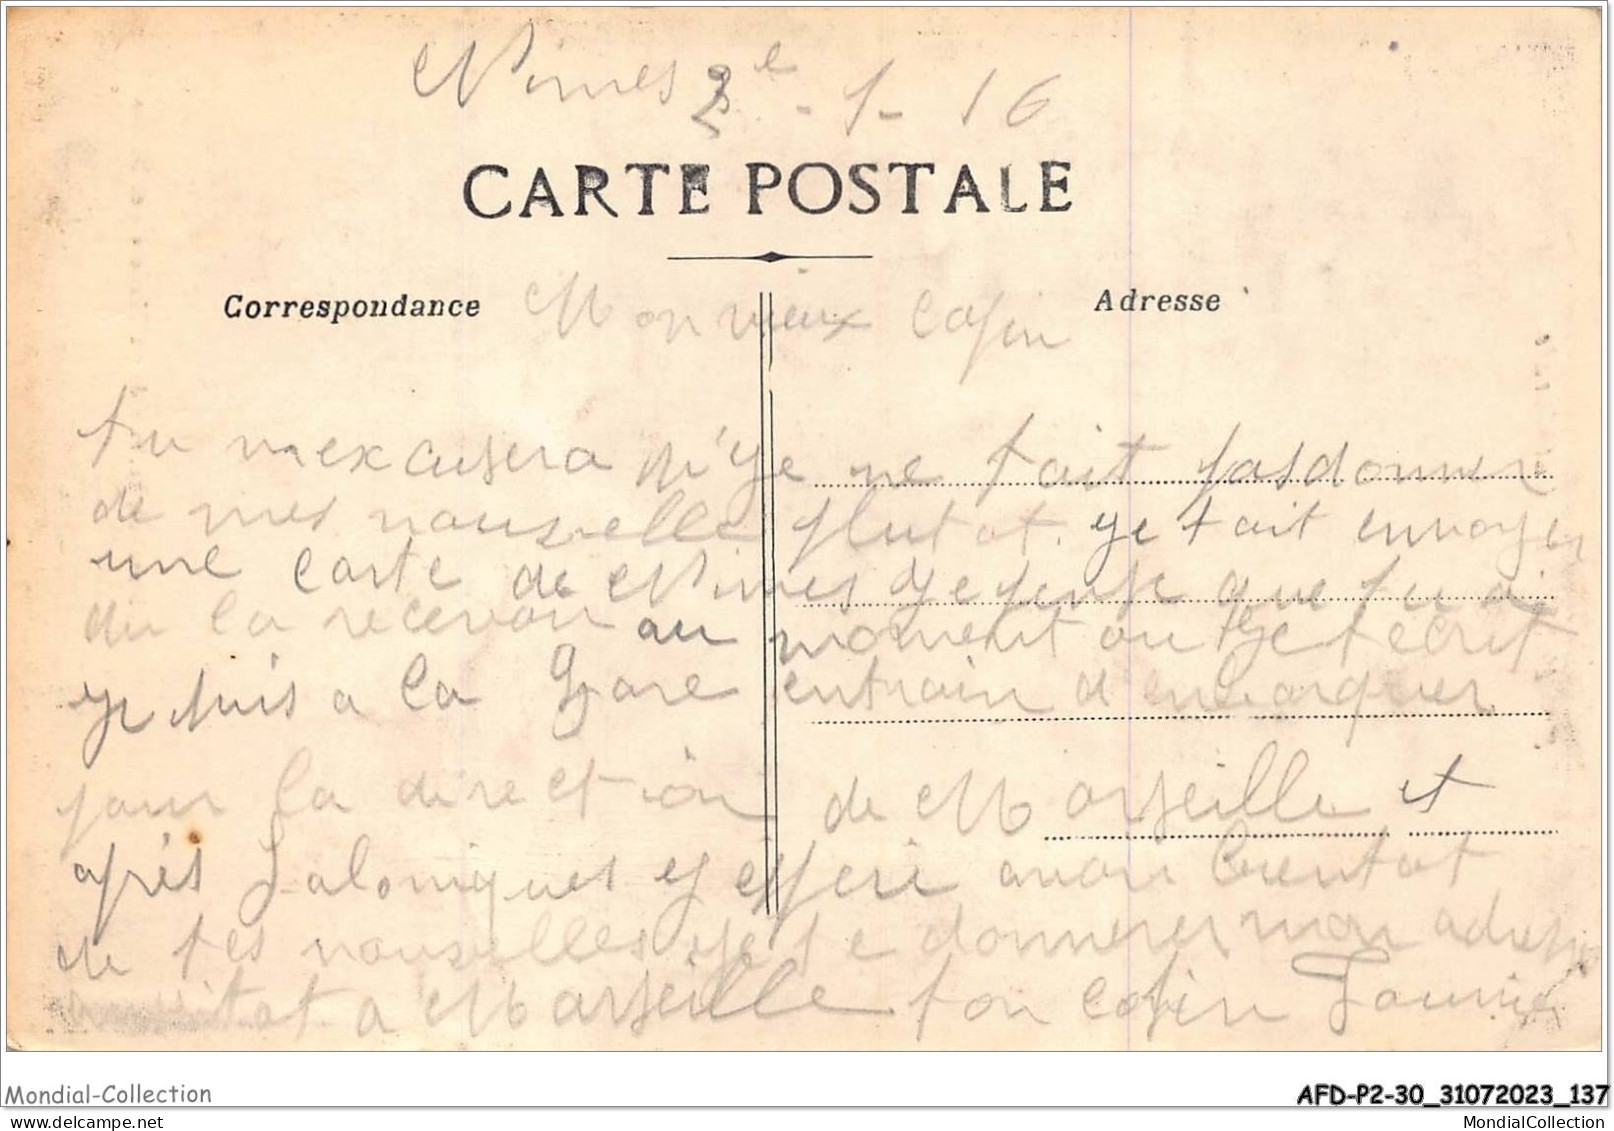 Nimes 2e - 1 - 16
CARTE POSTALE
Correspondance
Adresse
Mon vieux Cosin
tu mexcusera si ye ne tait pas donner
de mes nouvelle plutot. ye tait envoyer
une carte de Nimes ye pense que tu a
du la recevoir au moment ou ye tecrit
ye suis a la Gare entrain d'embarquer
pour la direction de Marseille et
après Saloniques y esperè avoir bientot
de tes nouvelles ye te donnerer mon adresse
aussitot a Marseille ton Cosin
Mondial-Collection
AFD-P2-30_31072023_137
www.delcampe.net
MondialCollection